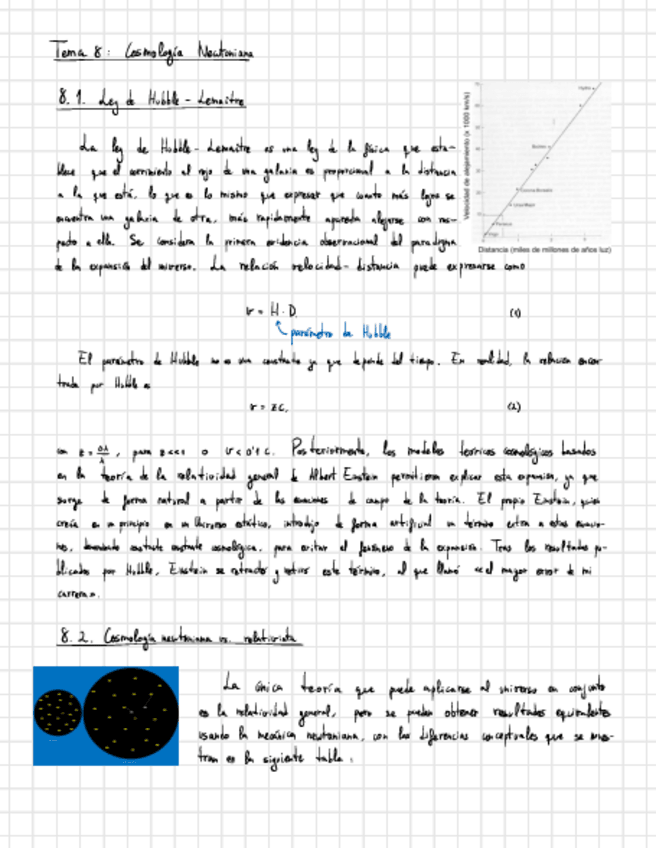 Tema 8: Cosmología Newtoniana
8.1. Ley de Hubble-Lemaitre
La ley de Hubble-Lemaitre es una ley de la física que esta-
blece que el corrimiento al rojo de una galaxia es proporcional a la distancia
a la que está, lo que es lo mismo que expresar que cuanto más lejos se
encuentra una galaxia de otra, más rapidamente aparenta alejarse con res-
pecto a ella. Se considera la primera evidencia observacional del paradigma
de la expansión del universo. La relación velocidad-distancia puede expresarse como
Velocidad de alejamiento (x 1000 km/s)
Hydra
Bootes
Corona Borealis
Ursa Major
Perseus
Virgo
Distancia (miles de millones de años luz)
v = H · D. (1)
parámetro de Hubble
El parámetro de Hubble no es una constante ya que depende del tiempo. En realidad, la relación encon-
trada por Hubble es
v = zc, (2)
con z = Δλ/λ, para z<<1 o v<0'1 c. Posteriormente, los modelos teoricos cosmológicos basados
en la teoría de la relatividad general de Albert Einstein permitieron explicar esta expansion, ya que
surge de forma natural a partir de las ecuaciones de campo de la teoría. El propio Einstein, quien
creía en un principio en un Universo estático, introdujo de forma artificial un término extra a estas ecuacio-
nes, denominado constante cosmológica, para evitar el fenómeno de la expansión. Tras los resultados pu-
blicados por Hubble, Einstein se retractó y retiró este término, al que llamó «el mayor error de mi
carrera».
8.2. Cosmología newtoniana vs. relativista
La única teoría que puede aplicarse al universo en conjunto
es la relatividad general, pero se pueden obtener resultados equivalentes
usando la mecánica newtoniana, con las diferencias conceptuales que se mues-
tran en la siguiente tabla: